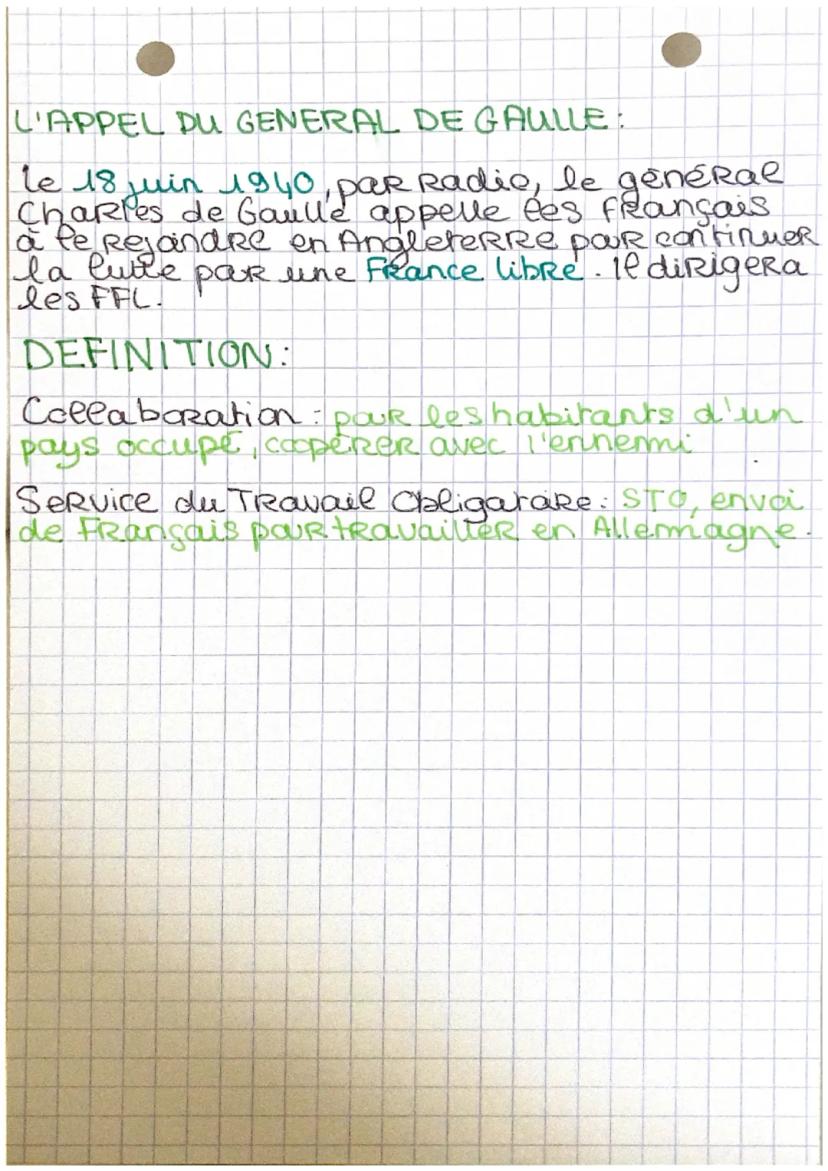 L'APPEL DU GENERAL DE GAULLE :
Le 18 juin 1940, par radio, le général
Charles de Gaulle appelle les français
à le rejoindre en Angleterre pour continuer
la lutte par une France libre. Il dirigera
les FFL.
DEFINITION :
Collaboration : pour les habitants d'un
pays occupé, coopérer avec l'ennemi
Service du Travail Obligatoire : STO, envoi
de Français pour travailler en Allemagne.